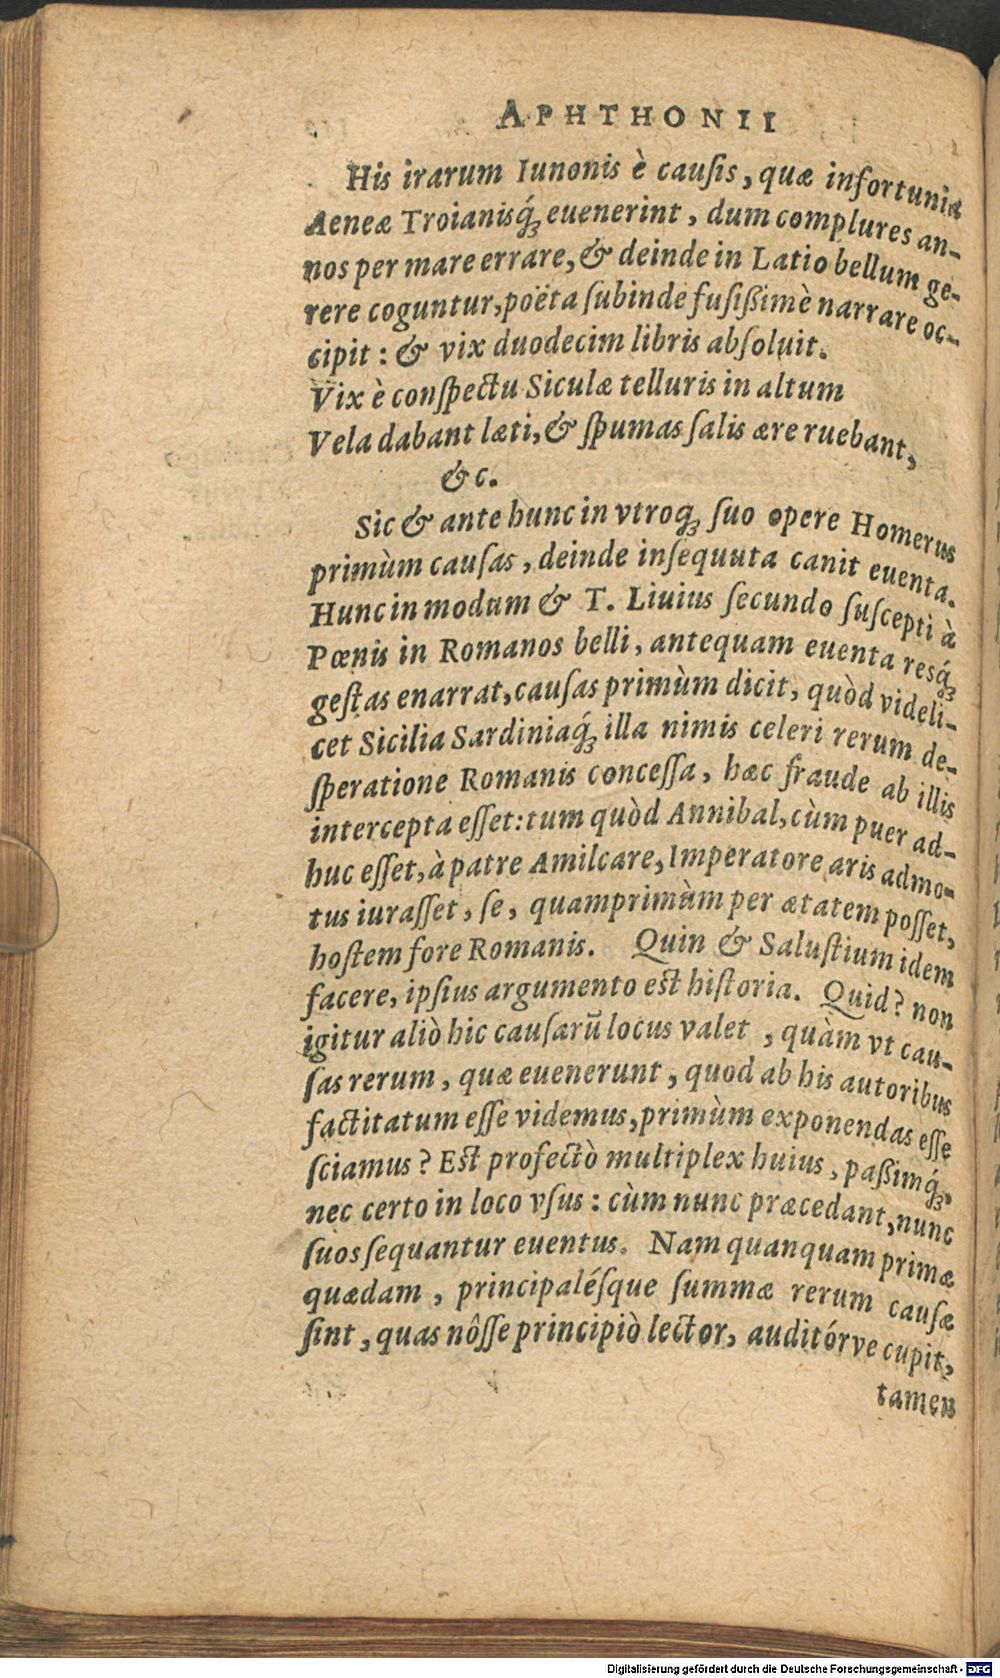 APHTHONII
His irarum Iunonis è cauſis, quæ infortunia
Aeneæ Troianisq́ꝫ euenerint, dum complures an-
nos per mare errare, & deinde in Latio bellum ge-
rere coguntur, poëta ſubinde fuſißimè narrare oc-
cipit: & vix duodecim libris abſoluit.
Vix è conſpectu Siculæ telluris in altum
Vela dabant læti, & ſpumas ſalis ære ruebant,
& c.
Sic & ante hunc in vtroqꝫ ſuo opere Homerus
primùm cauſas, deinde inſequuta canit euenta.
Hunc in modum & T. Liuius ſecundo ſuſcepti à
Pœnis in Romanos belli, antequam euenta resq́ꝫ
geſtas enarrat, cauſas primùm dicit, quòd videli-
cet Sicilia Sardiniaq́ꝫ illa nimis celeri rerum de-
ſperatione Romanis conceſſa, hæc fraude ab illis
intercepta eſſet: tum quòd Annibal, cùm puer ad-
huc eſſet, à patre Amilcare, Imperatore aris admo-
tus iuraſſet, ſe, quamprimùm per ætatem poſſet,
hoſtem fore Romanis. Quin & Saluſtium idem
facere, ipſius argumento eſt hiſtoria. Quid? non
igitur aliò hic cauſarū locus valet, quàm vt cau-
ſas rerum, quæ euenerunt, quod ab his autoribus
factitatum eſſe videmus, primùm exponendas eſſe
ſciamus? Eſt profectò multiplex huius, paßimq́ꝫ,
nec certo in loco vſus: cùm nunc præcedant, nunc
ſuos ſequantur euentus. Nam quanquam primæ
quædam, principaléſque ſummæ rerum cauſæ
ſint, quas nôſſe principiò lector, auditórve cupit,
tamen
Digitalisierung gefördert durch die Deutsche Forschungsgemeinschaft - DFG